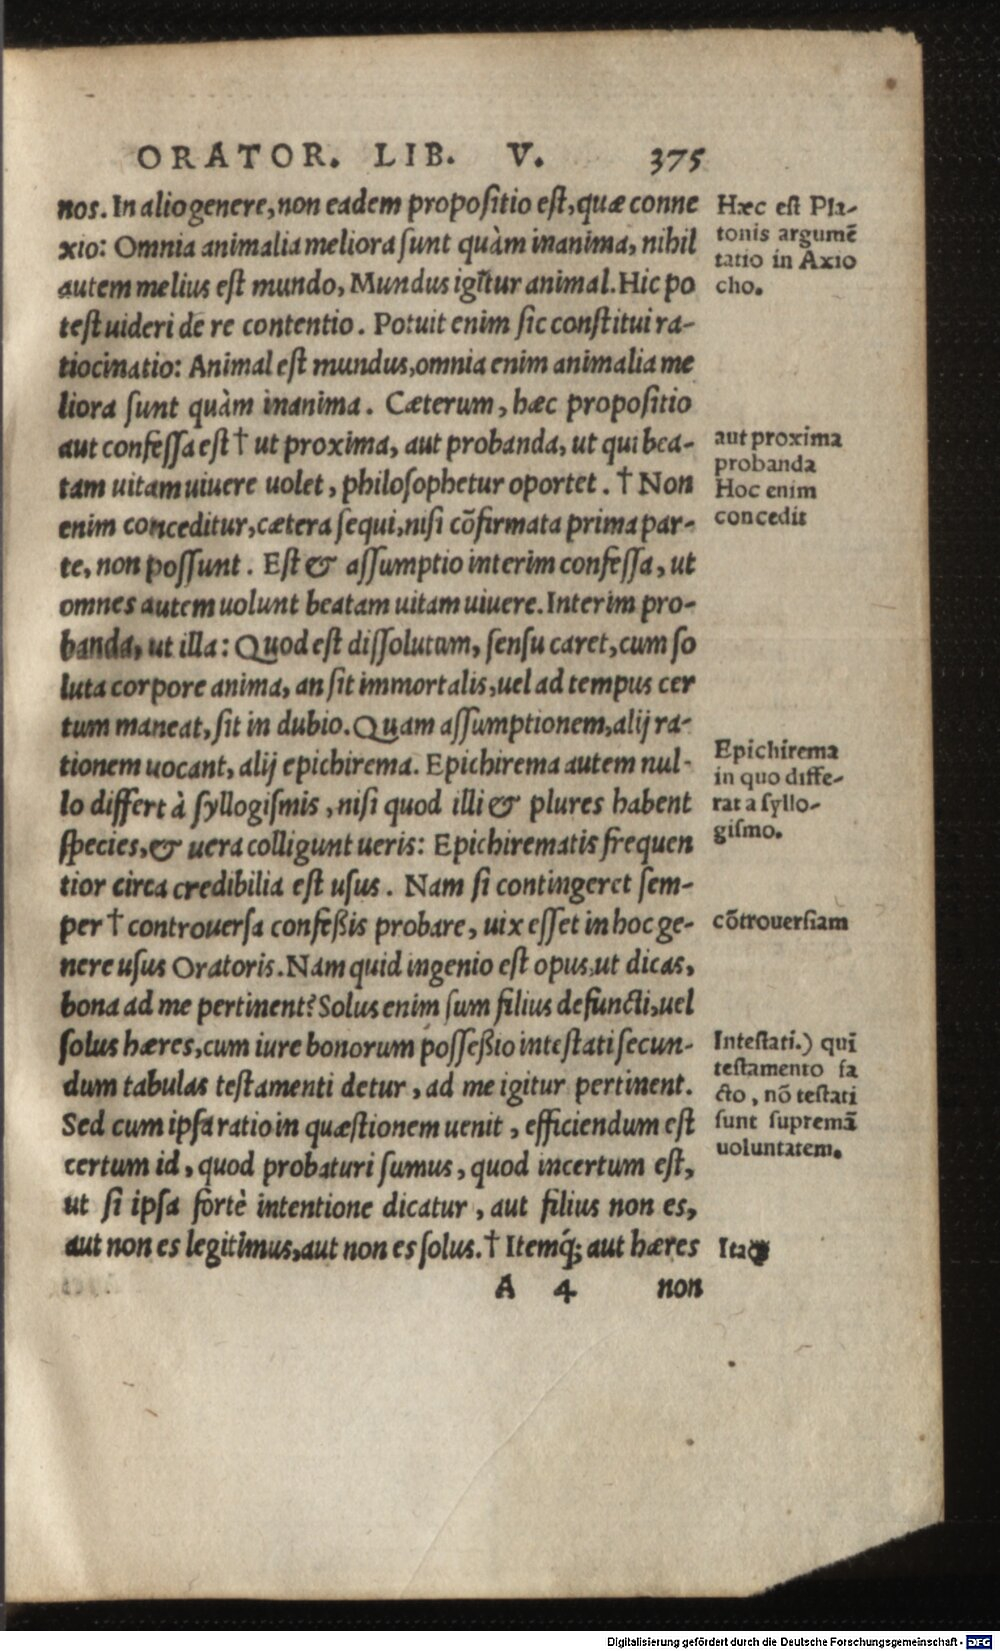 ORATOR. LIB. V. 375
nos. In alio genere, non eadem propositio est, quæ conne
xio: Omnia animalia meliora sunt quàm inanima, nihil
autem melius est mundo, Mundus igitur animal. Hic po
test uideri de re contentio. Potuit enim sic constitui ra-
tiocinatio: Animal est mundus, omnia enim animalia me
liora sunt quàm inanima. Cæterum, hæc propositio
aut confessa est † ut proxima, aut probanda, ut qui bea-
tam uitam uiuere uolet, philosophetur oportet. † Non
enim conceditur, cætera sequi, nisi cõfirmata prima par-
te, non possunt. Est & assumptio interim confessa, ut
omnes autem uolunt beatam uitam uiuere. Interim pro-
banda, ut illa: Quod est dissolutum, sensu caret, cum so
luta corpore anima, an sit immortalis, uel ad tempus cer
tum maneat, sit in dubio. Quam assumptionem, alij ra-
tionem uocant, alij epichirema. Epichirema autem nul-
lo differt à syllogismis, nisi quod illi & plures habent
species, & uera colligunt ueris: Epichirematis frequen
tior circa credibilia est usus. Nam si contingeret sem-
per † controuersa confeßis probare, uix esset in hoc ge-
nere usus Oratoris. Nam quid ingenio est opus, ut dicas,
bona ad me pertinent? Solus enim sum filius defuncti, uel
solus hæres, cum iure bonorum posseßio intestati secun-
dum tabulas testamenti detur, ad me igitur pertinent.
Sed cum ipsa ratio in quæstionem uenit, efficiendum est
certum id, quod probaturi sumus, quod incertum est,
ut si ipsa fortè intentione dicatur, aut filius non es,
aut non es legitimus, aut non es solus. † Itemq́; aut hæres
A 4 non
Hæc est Pla-
tonis argumẽ
tatio in Axio
cho.
aut proxima
probanda
Hoc enim
concedit
Epichirema
in quo diffe-
rat a syllo-
gismo.
cõtrouersiam
Intestati.) quĩ
testamento fa
cto, nõ testati
sunt supremã
uoluntatem.
Itaq;
Digitalisierung gefördert durch die Deutsche Forschungsgemeinschaft - DFG